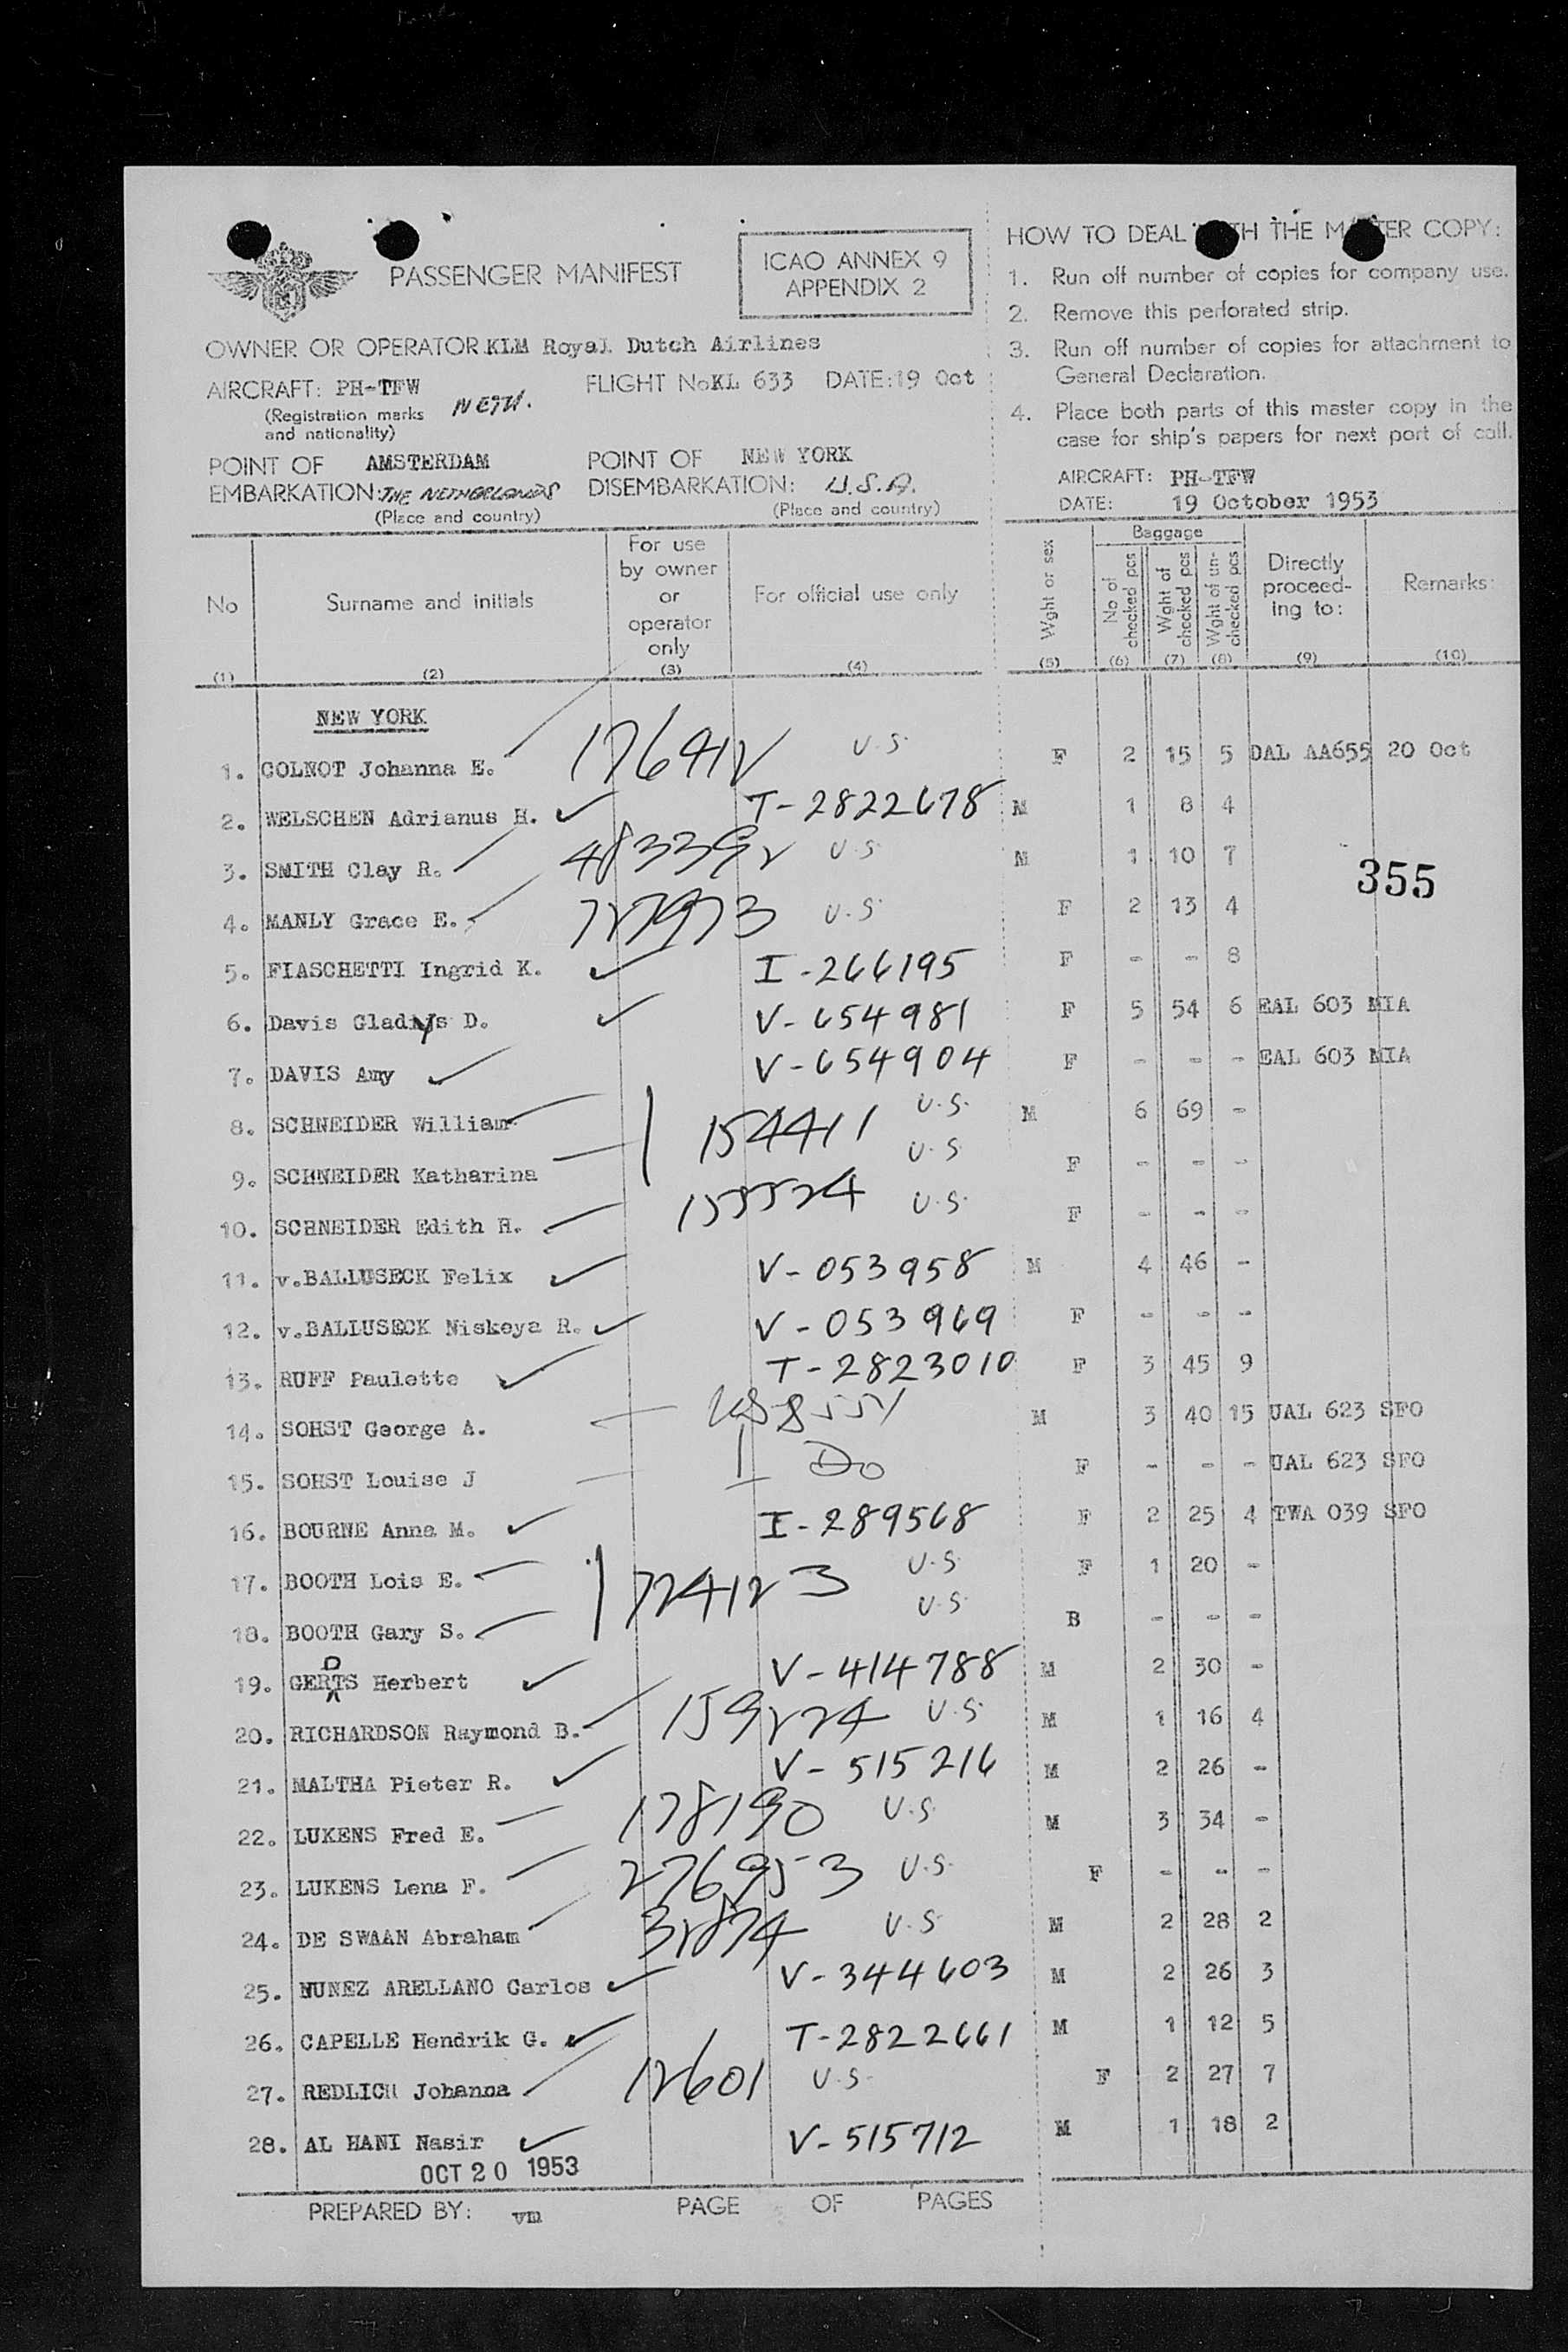 PASSENGER MANIFEST
ICAO ANNEX 9
APPENDIX 2
OWNER OR OPERATOR KLM Royal Dutch Airlines
AIRCRAFT: PH-TFW NETH. FLIGHT No KL 633 DATE: 19 Oct
(Registration marks
and nationality)
POINT OF AMSTERDAM POINT OF NEW YORK
EMBARKATION: THE NETHERLANDS DISEMBARKATION: U.S.A.
(Place and country) (Place and country)
HOW TO DEAL WITH THE MASTER COPY:
1. Run off number of copies for company use.
2. Remove this perforated strip.
3. Run off number of copies for attachment to
General Declaration.
4. Place both parts of this master copy in the
case for ship's papers for next port of call.
AIRCRAFT: PH-TFW
DATE: 19 October 1953
No Surname and initials For use by owner or operator only For official use only Wght or sex Baggage No of checked pcs Wght of checked pcs Wght of un-checked pcs Directly proceed-ing to: Remarks:
(1) (2) (3) (4) (5) (6) (7) (8) (9) (10)
NEW YORK
1. COLNOT Johanna E. U.S. F 2 15 5 DAL AA655 20 Oct
2. WELSCHEN Adrianus H. T-2822678 M 1 8 4
3. SMITH Clay R. U.S M 1 10 7
355
4. MANLY Grace E. U.S F 2 13 4
5. FIASCHETTI Ingrid K. I-266195 F - - 8
6. Davis Gladys D. V-654981 F 5 54 6 EAL 603 MIA
7. DAVIS Amy V-654904 F - - - EAL 603 MIA
8. SCHNEIDER William 154411 U.S. M 6 69 -
9. SCHNEIDER Katharina U.S F - - -
10. SCHNEIDER Edith H. U.S. F - - -
11. v.BALLUSECK Felix V-053958 M 4 46 -
12. v.BALLUSECK Niskeya R. V-053969 F - - -
13. RUFF Paulette T-2823010 F 3 45 9
14. SOHST George A. M 3 40 15 UAL 623 SFO
15. SOHST Louise J Do F - - - UAL 623 SFO
16. BOURNE Anna M. I-289568 F 2 25 4 TWA 039 SFO
17. BOOTH Lois E. 724123 U.S. F 1 20 -
18. BOOTH Gary S. U.S. B - - -
19. GERDTS Herbert V-414788 M 2 30 -
20. RICHARDSON Raymond B. 159224 U.S. M 1 16 4
21. MALTHA Pieter R. V-515216 M 2 26 -
22. LUKENS Fred E. 178190 U.S. M 3 34 -
23. LUKENS Lena F. 276953 U.S. F - - -
24. DE SWAAN Abraham U.S M 2 28 2
25. NUNEZ ARELLANO Carlos V-344603 M 2 26 3
26. CAPELLE Hendrik G. T-2822661 M 1 12 5
27. REDLICH Johanna 12601 U.S. F 2 27 7
28. AL HANI Nasir V-515712 M 1 18 2
OCT 20 1953
PREPARED BY: vm PAGE OF PAGES